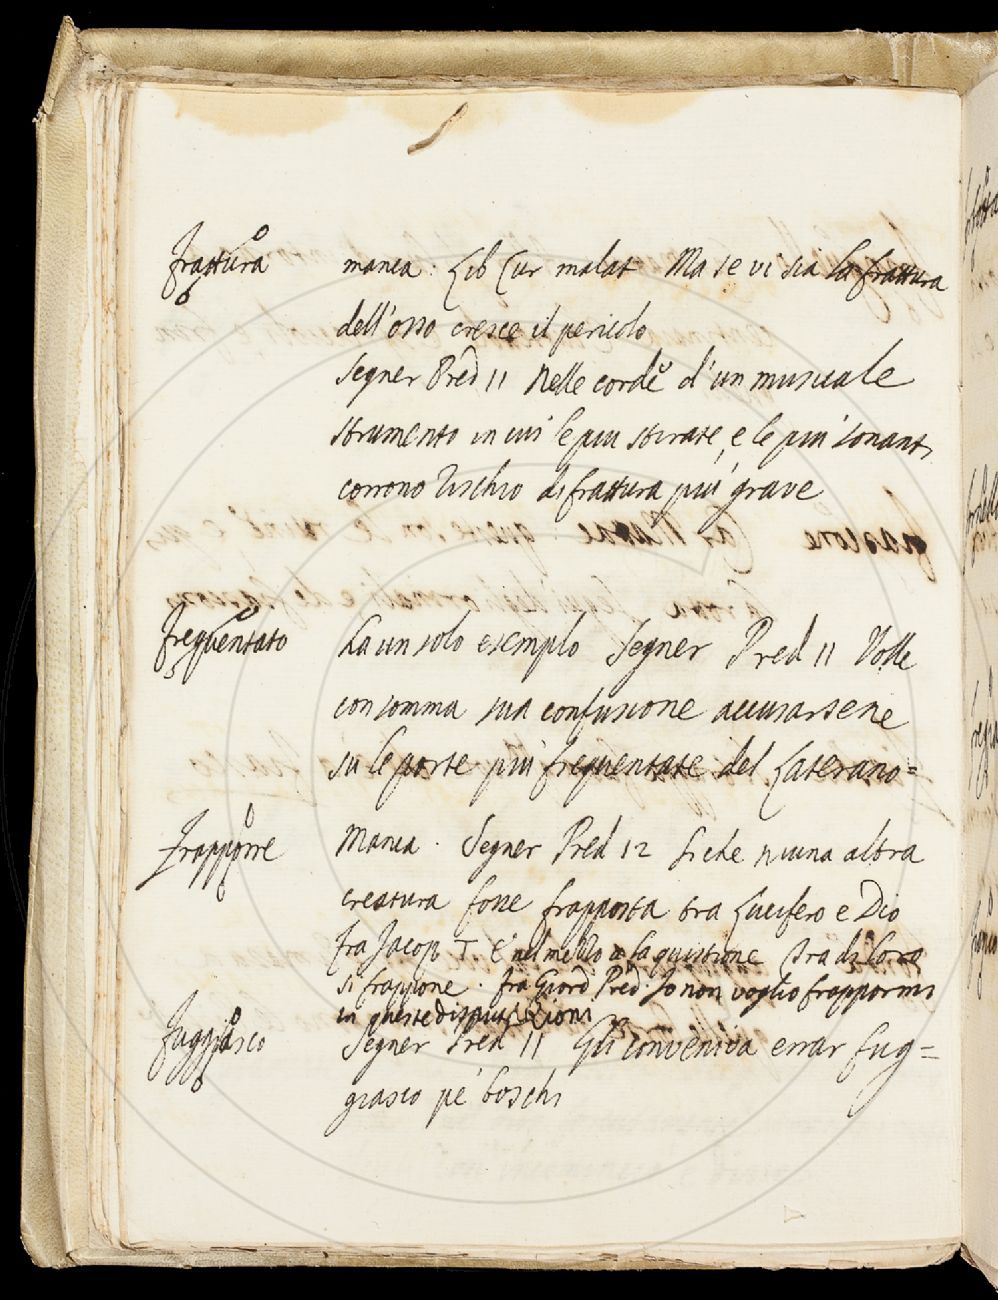 frattura manca. Lib Cur malat Ma se vi sia la frattura
dell'osso cresce il pericolo
Segner Pred 11 Nelle corde d'un musicale
strumento in cui le piu stirate, e le piu sonanti
corrono rischio di frattura piu grave
frequentato Ha un solo esemplo Segner Pred 11 Volle
con somma sua confusione accusarsene
su le porte piu frequentate del Laterano=
Frapporre Manca. Segner Pred 12 Siche niuna altra
creatura fosse frapposta tra Lucifero e Dio
Fra Jacop T. E nel mezzo la quistione
si frappone. fra Giord Pred. Io non voglio frappormi
in queste disputazioni
Fuggiasco Segner Pred 11 Gli conveniva errar fug=
giasco pe' boschi